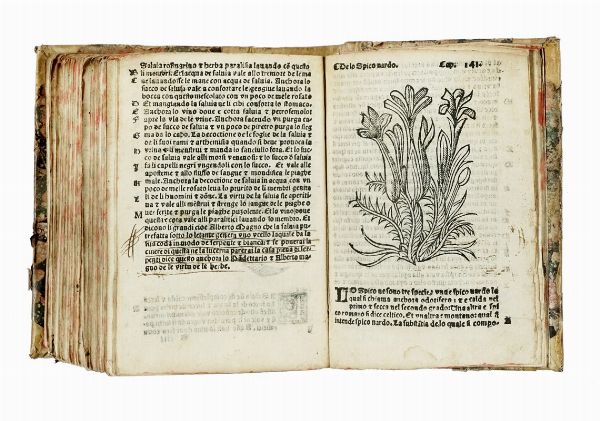 Saluia rosmarino et herba paralisi lauando cō questo
B li membri. Et lacqua de saluia vale allo tremore de le ma
C ne lauandosse le mane con acqua de saluia. Anchora lo
succo de saluia vale a confortare le gengiue lauando la
bocca con questo mescolato con vn poco de mele rosato
D Et mangiando la saluia ne li cibi conforta lo stomaco.
E Anchora lo vino doue e cotta saluia et petrosemolo
F apre la via de le vrine. Anchora facendo vn purga capo
de succo de saluia et vn poco de piretro purga lo fleg
G ma da lo capo. La decoctione de le foglie de la saluia et
de li suoi rami et arthemisia quando si beue prouoca la
H vrina et li menstrui et manda lo fanciullo fora. Et lo suc
co de saluia vale alli morsi venenosi: et lo succo de saluia
I fa li capelli negri vngendoli con lo succo. Et vale alle
aposteme et allo fluxo de sangue et mondifica le piaghe
K male. Anchora la decoctione de saluia in acqua con vn
poco de mele rosato leua lo prurito de li membri genita
L li de li huomini et done. La virtu de la saluia fie aperiti
M ua et vale alli mestrui et strenge lo sangue de le piaghe o
ue ferite et purga le piaghe puzolente. Et lo vino doue
questa e cota vale alli paralitici lauando lo membro. Et
dicono li grandi cioe Alberto Magno che la saluia pu
trefatta sotto lo letame genera vno vcello laquale ha la
sua coda in modo de serpente et bianca: et se ponerai la
cinere di questa ne la lucerna parera la casa piena di ser
penti dice questo anchora lo
mag
no de le virtu de le herbe.
De lo Spico nardo. Cap. 141.
LO Spico ne sono tre specie: vna e spico nardo la
qual si chiama anchora odorifera: et e calda nel
primo et secco nel secondo grado: vna altra e spi
co romano si dice celtico. Et vn altra e montano: qual si
intende spico nardo. La substātia de lo quale si compo-